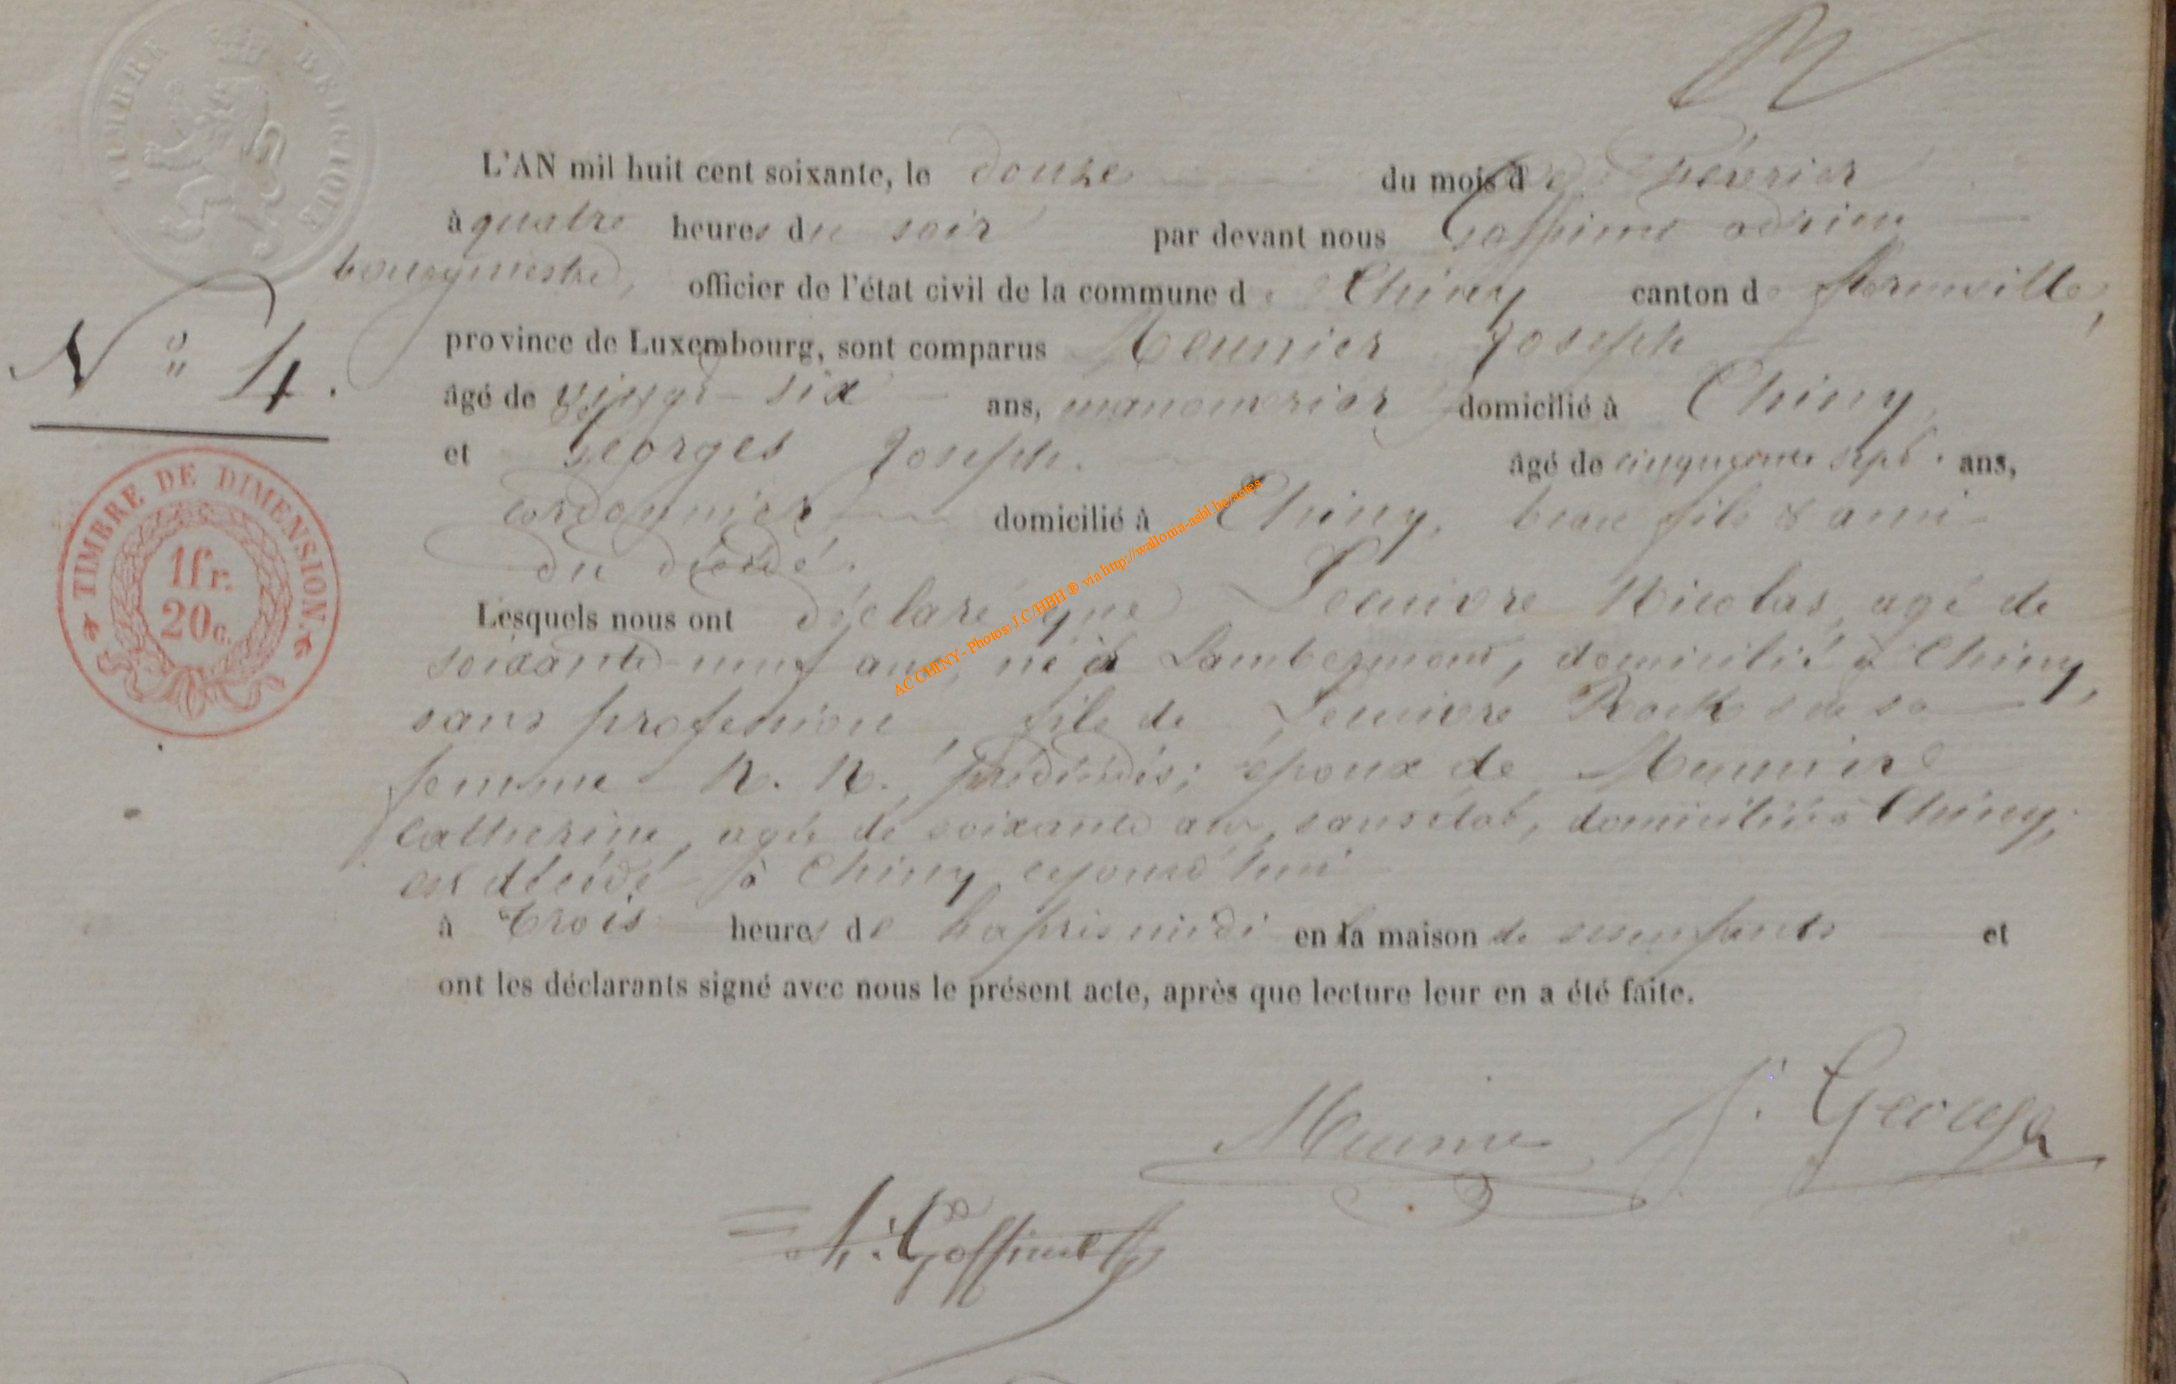 TIMBRE BELGIQUE
L'AN mil huit cent soixante, le douze du mois de février
à quatre heures du soir par devant nous Goffinet adrien
bourgmestre, officier de l'état civil de la commune de Chiny canton de florenville,
province de Luxembourg, sont comparus Meunier Joseph
N° 4.
âgé de vingt-six ans, manouvrier domicilié à Chiny
et Georges Joseph. âgé de cinquante sept ans,
cordonnier domicilié à Chiny, beau fils & ami
du décédé.
TIMBRE DE DIMENSION.
1fr.
20c.
Lesquels nous ont déclaré que Nicolas, agé de
soixante-neuf ans, né à Lambermont, domicilié à Chiny,
sans profession, fils de Rock & de sa
femme N. N., prédécédés; époux de Meunier
Catherine, agée de soixante ans, sans état, domiciliée à Chiny,
est décédé à Chiny cejourd'hui
à trois heures de l'après midi en la maison de ses enfants et
ont les déclarants signé avec nous le présent acte, après que lecture leur en a été faite.
Meunier J. Georges
A. Goffinet
AC CHINY- Photos J.C/HBH ® via http://wallonia-asbl.be/actes